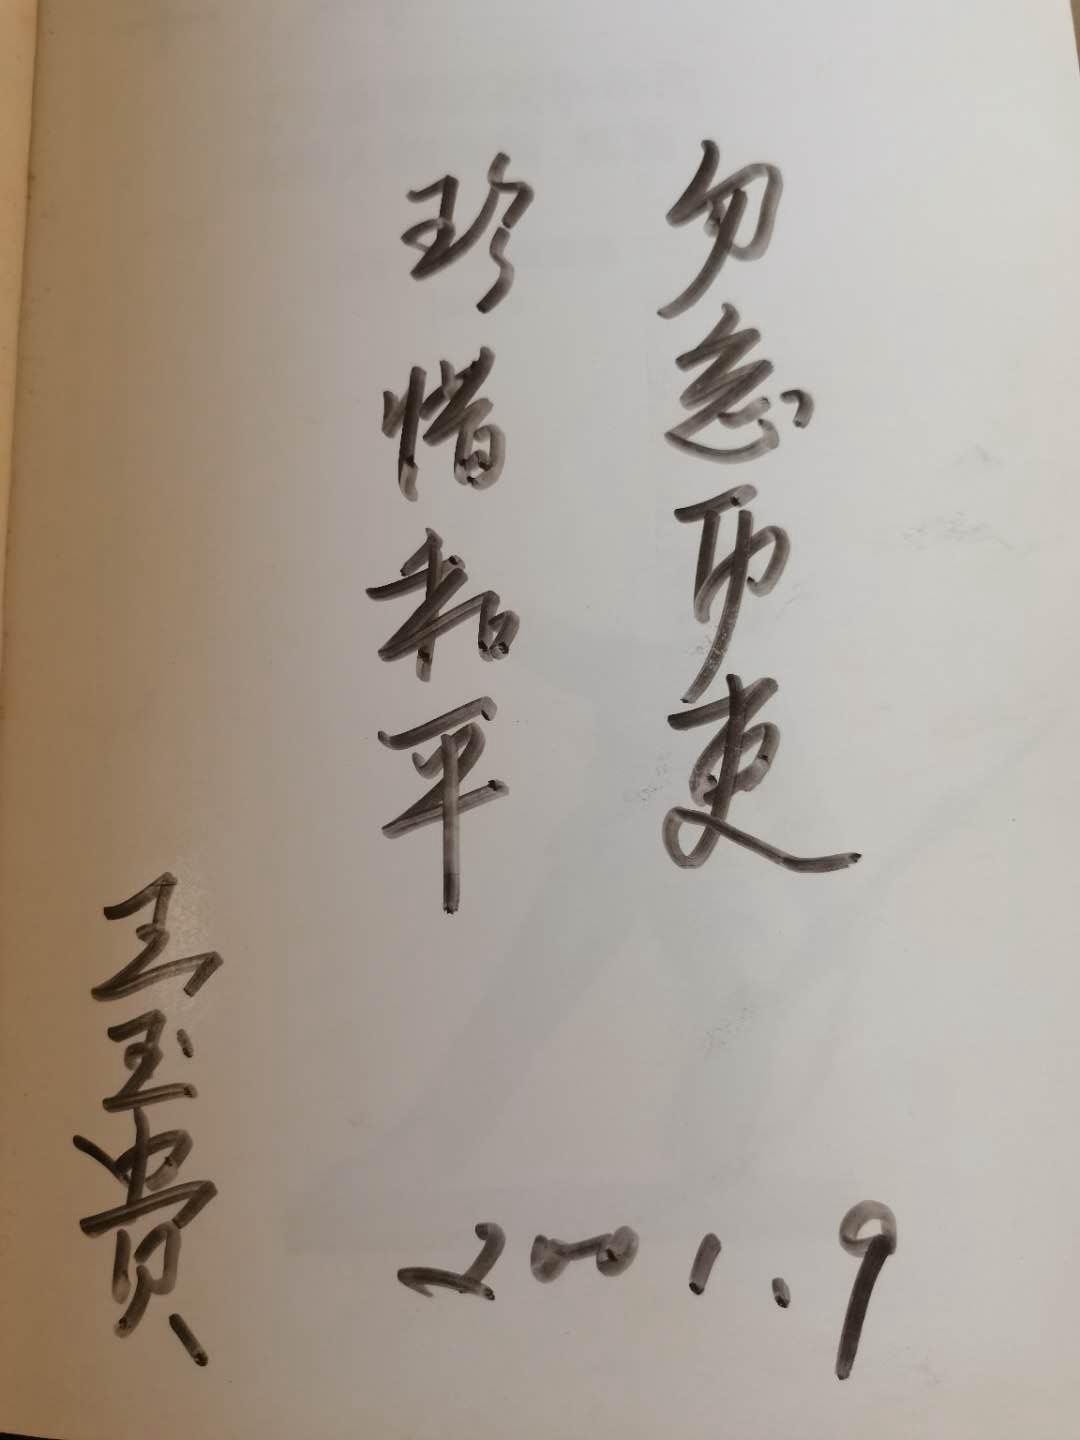 勿忘历史
珍惜和平
王玉贵
2001.9